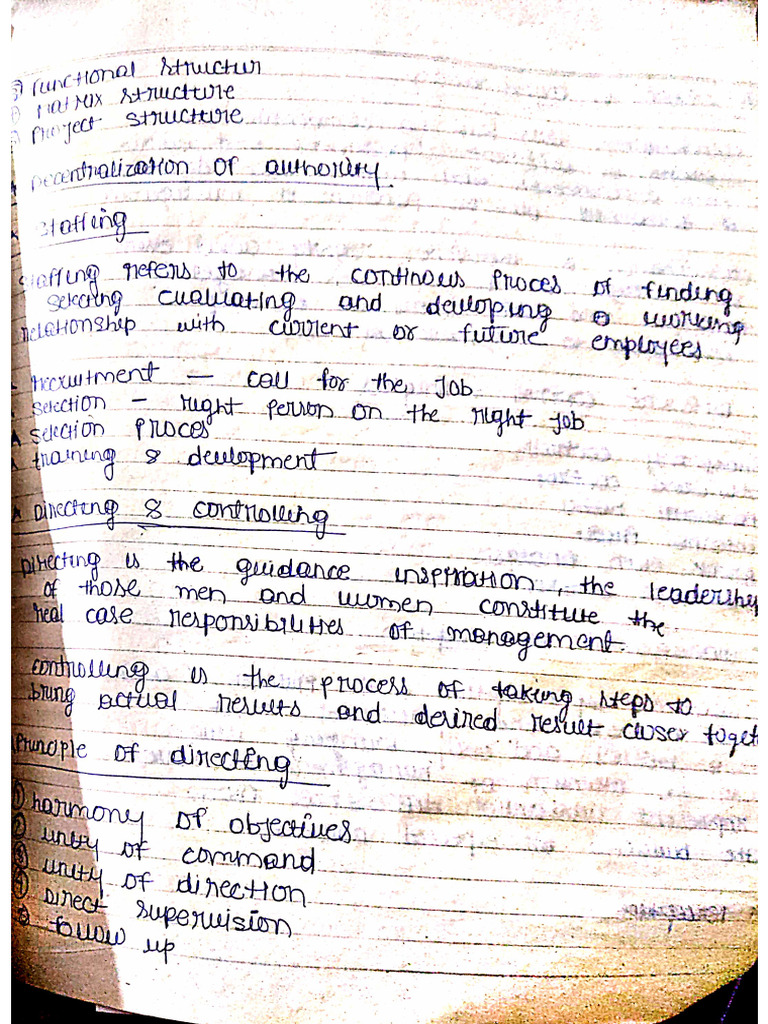 ③ Functional structur
④ Matrix structure
⑤ Project structure
Decentralization of authority.
Staffing
Staffing refers to the continous proces of finding
selecting evaluating and developing a working
relationship with current or future employees
recruitment — call for the job
selection — right person on the right job
selection proces
training & development
Directing & controlling
Directing is the guidance inspiration, the leadership
of those men and women constitute the
real case responsibilities of management.
controlling is the process of taking steps to
bring actual results and desired result closer toget
Principle of directing
① harmony of objectives
② unity of command
③ unity of direction
④ Direct supervision
⑤ follow up